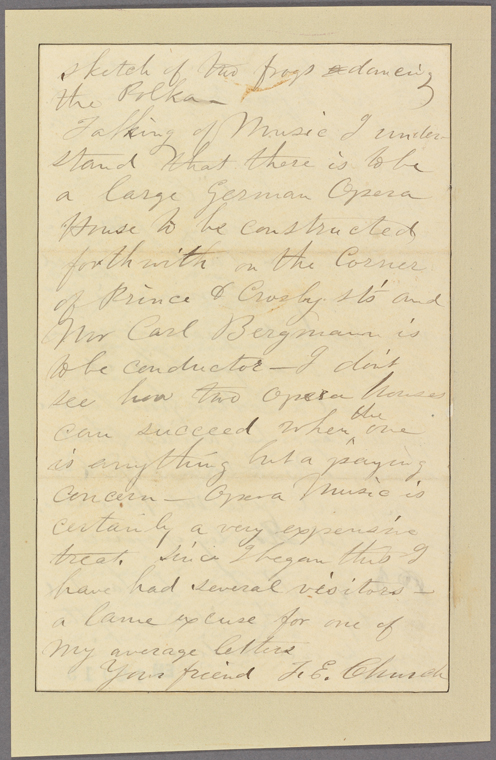 sketch of two frogs dancing
the Polka—
Talking of Music I under-
stand that there is to be
a large German Opera
House to be constructed
forthwith on the Corner
of Prince & Crosby sts and
Mr Carl Bergmann is
to be conductor — I don't
see how two Opera houses
can succeed when the one
is anything but a paying
concern — Opera Music is
certainly a very expensive
treat. Since I began this I
have had several visitors —
a lame excuse for one of
my average letters
Your friend F. E. Church